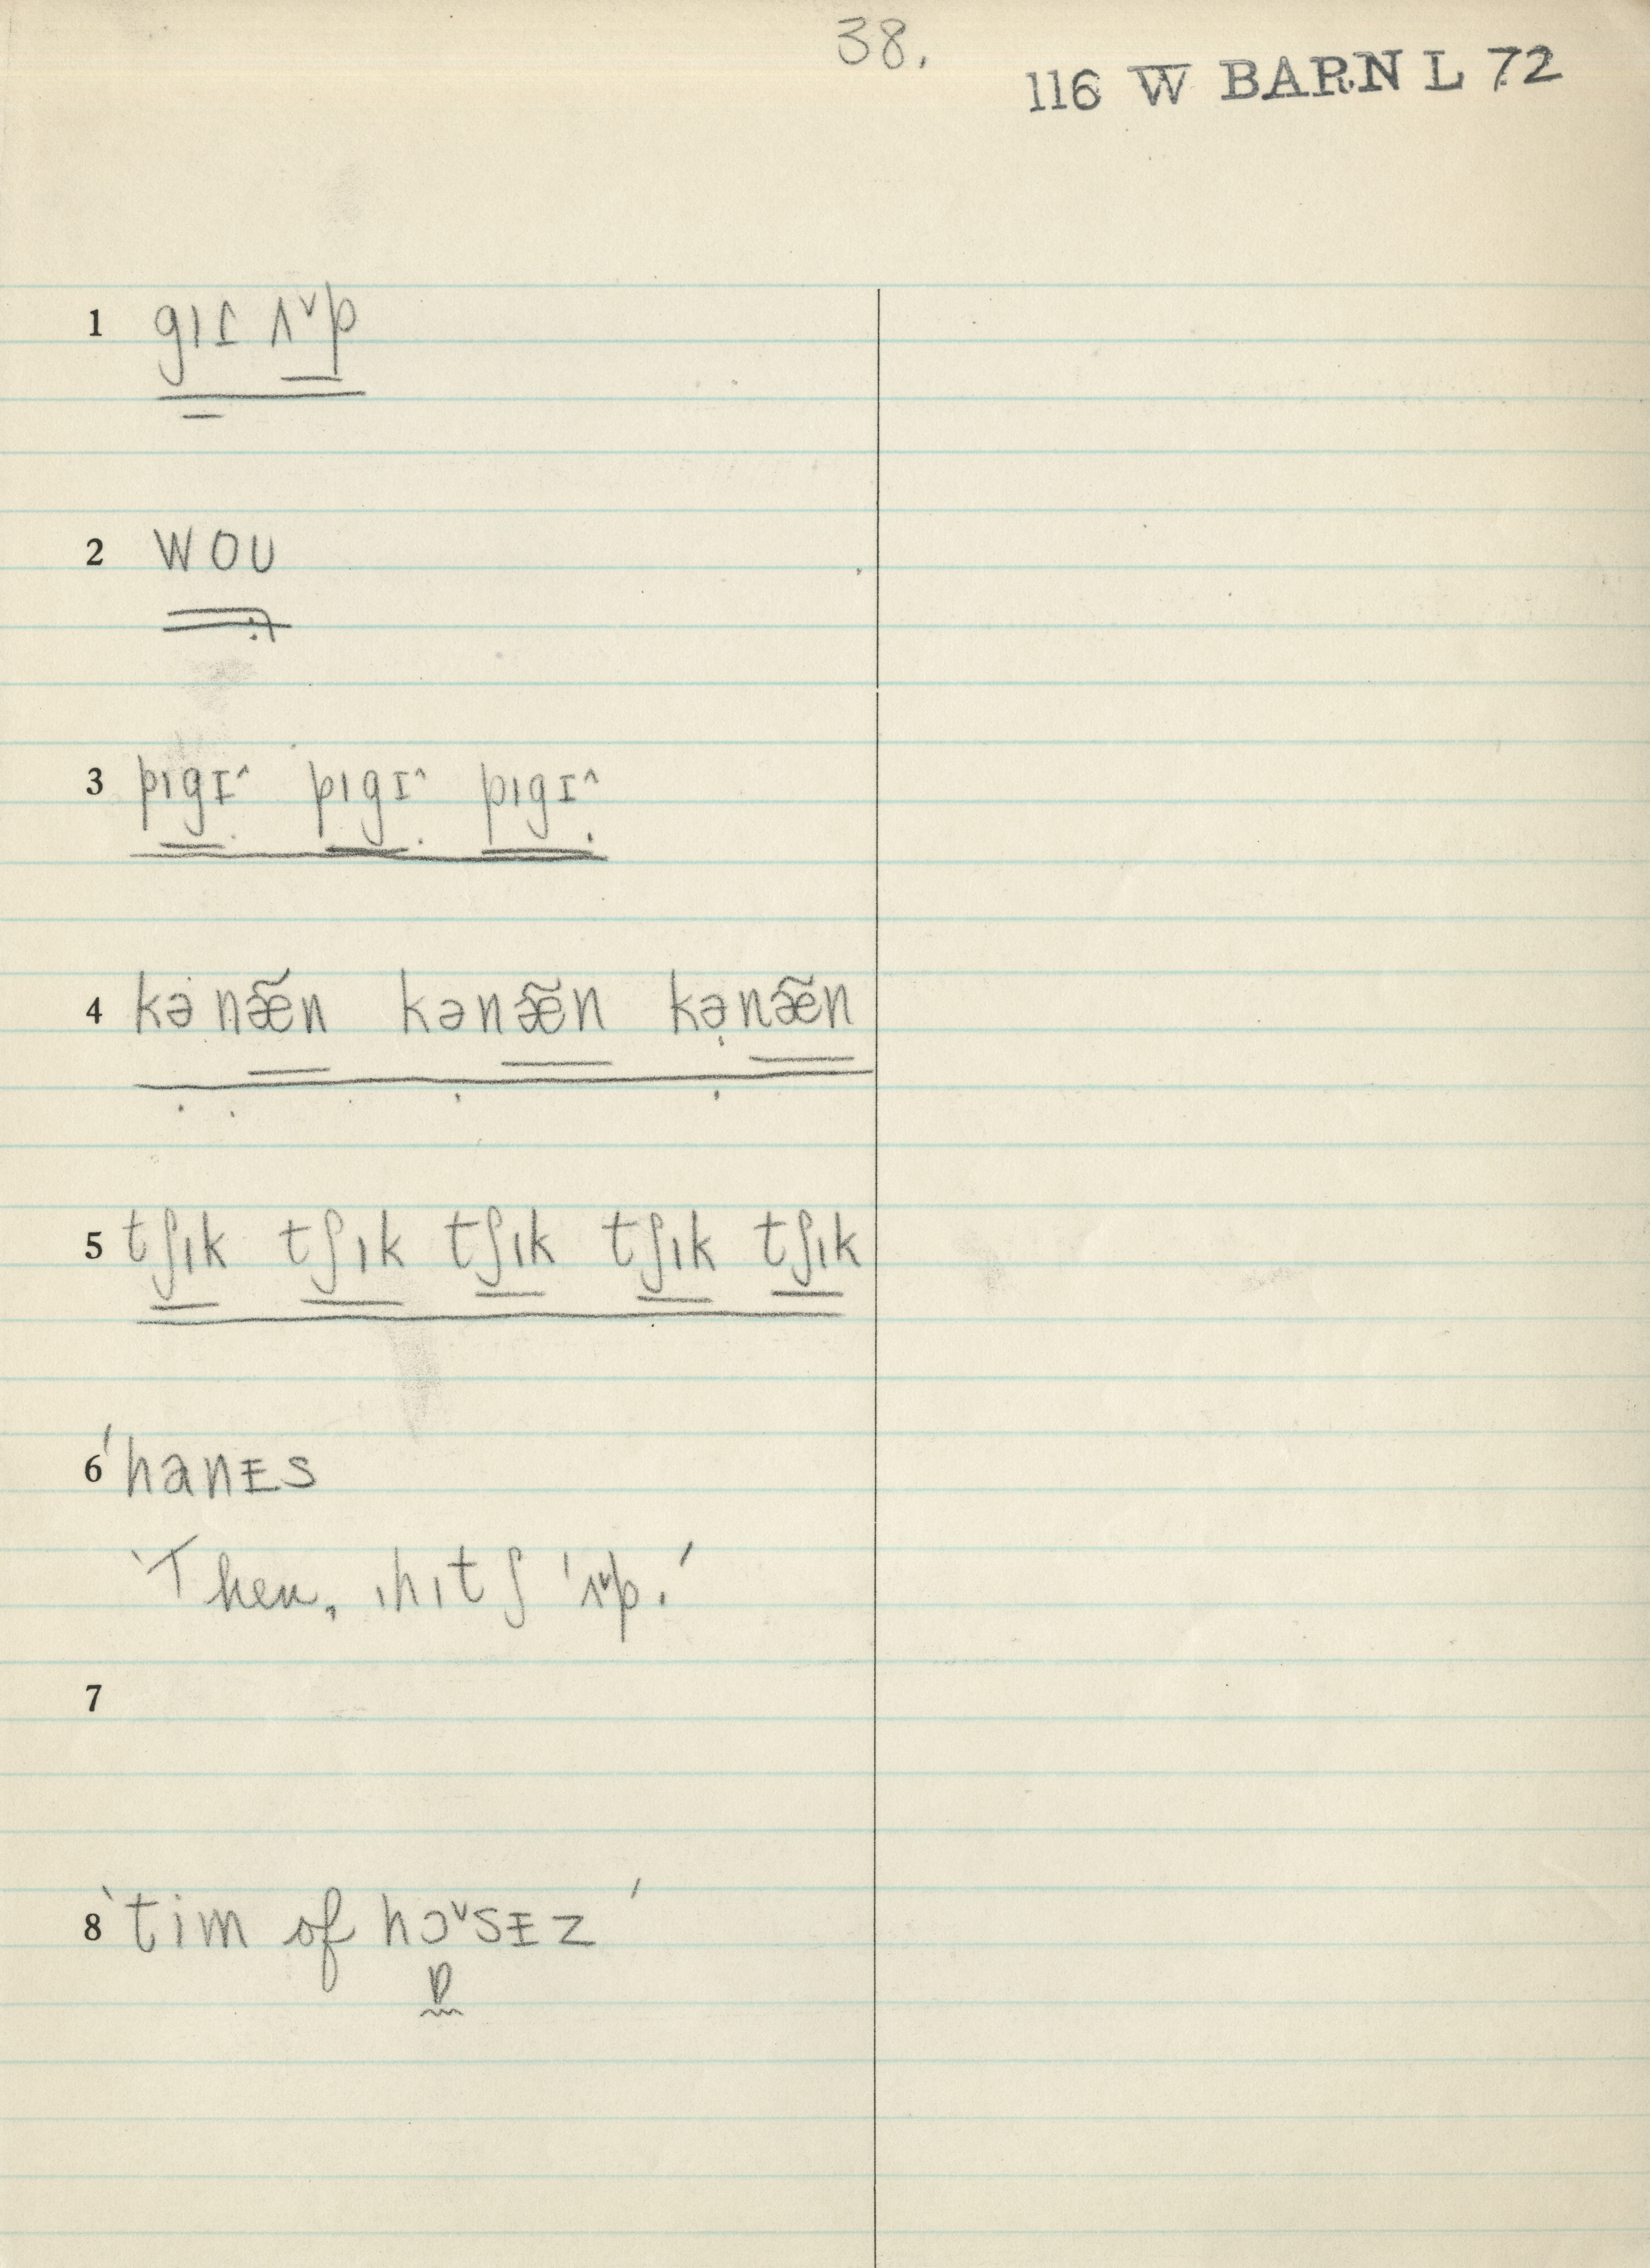 38.
116 W BARN L 72
1 gɪɾ ʌ˅p
2 woʊ
3 pɪgɪ^ pɪgɪ^ pɪgɪ^
4 kə næ̃n kənæ̃n kənæ̃n
5 tʃɪk tʃɪk tʃɪk tʃɪk tʃɪk
6 ˈhanᵻs
'Then, ˌhɪtʃ ˈʌ˅p.'
7
8 'tim of hɔ˅sᵻz'
ɒ